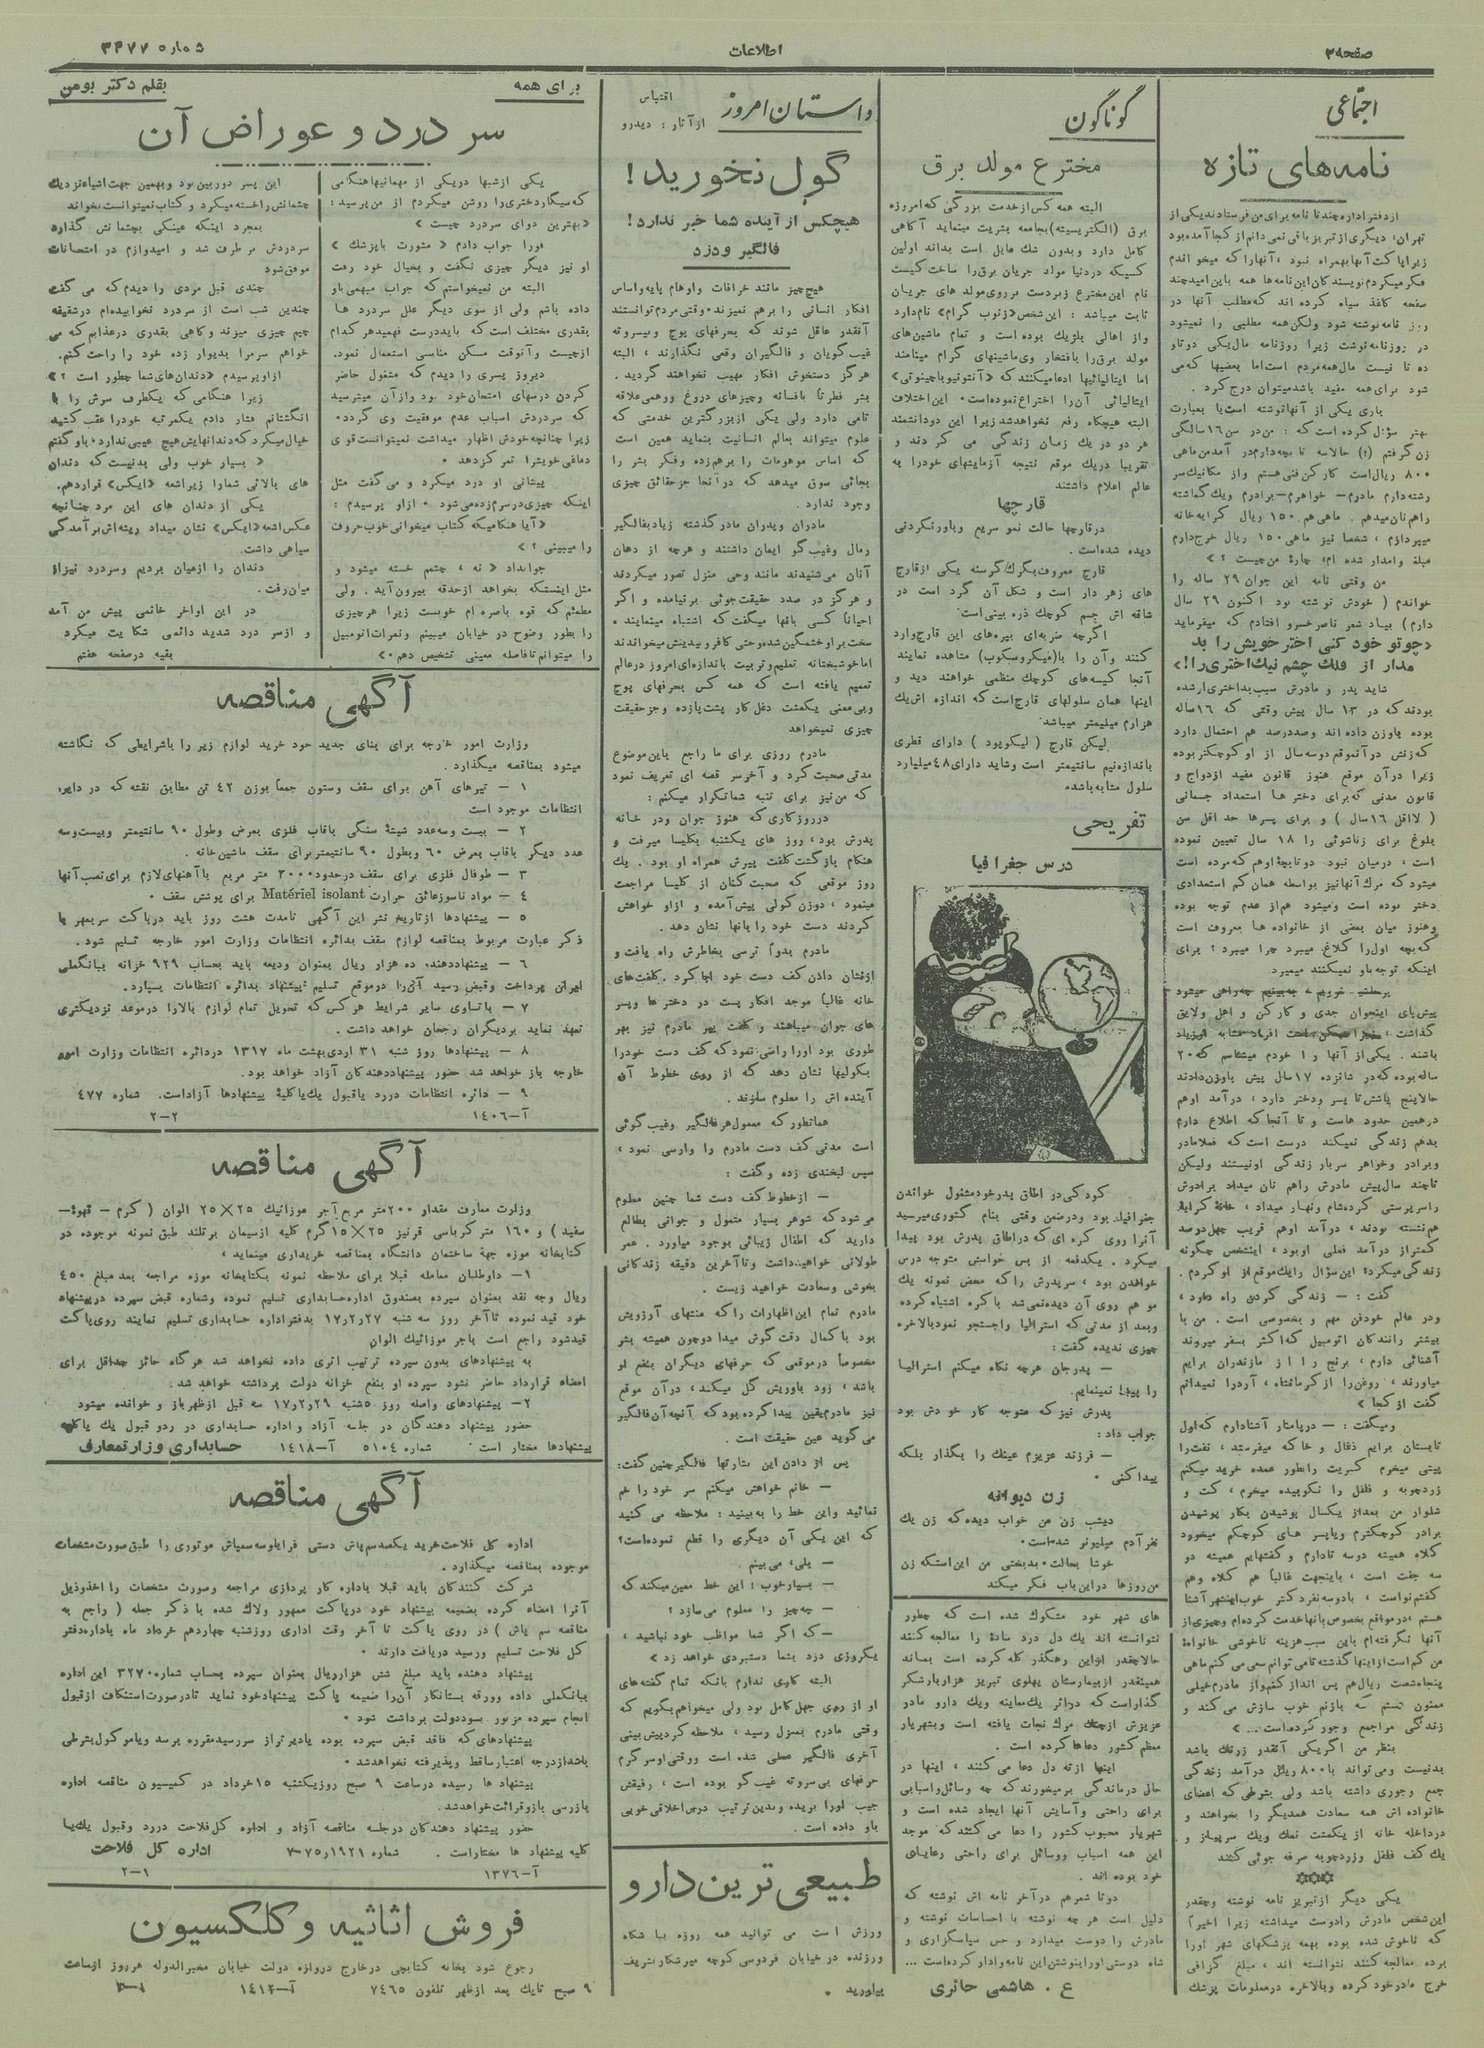 صفحه ۲
اطلاعات
شماره ۳۴۷۷
اجتماعی
نامه‌های تازه
از دفتر اداره چند تا نامه برای من فرستادند یکی از
تهران، دیگری از تبریز باقی نمی دانم از کجا آمده بود
زیرا پاکت آنها بهمراه نبود، آنها را که میخواندم
فکر میکردم نویسندگان این نامه‌ها همه باین امید چند
صفحه کاغذ سیاه کرده اند که مطلب آنها در
روزنامه نوشته شود ولیکن همه مطلبی را نمیشود
در روزنامه نوشت زیرا روزنامه مال یکی دو تا و
ده تا نیست مال همه مردم است اما بعضیها که می
شود برای همه مفید باشد میتوان درج کرد.
باری یکی از آنها نوشته است یا بعبارت
بهتر سؤال کرده است که: من در سن ۱۶ سالگی
زن گرفتم (!) حالا سه تا بچه دارم در آمد من ماهی
۸۰۰ ریال است کارکن فنی هستم و از مکانیک سر
رشته دارم مادرم - خواهرم - برادرم و یک گماشته
راهم نان میدهم. ماهی هم ۱۵۰ ریال کرایه خانه
میپردازم، شخصا نیز ماهی ۱۵۰ ریال خرج دارم
مبلغی وامدار شده ام، چارهٔ من چیست؟»
من وقتی نامه این جوان ۲۹ ساله را
خواندم (خودش نوشته بود اکنون ۲۹ سال
دارم) بیاد شعر ناصر خسرو افتادم که میفرماید
«چو تو خود کنی اختر خویش را بد
مدار از فلک چشم نیک اختری را!»
شاید پدر و مادرش سبب بد اختری او شده
بودند که در ۱۳ سال پیش وقتی که ۱۶ ساله
بوده باو زن داده اند و صد درصد هم احتمال دارد
که زنش در آنموقع دو سه سال از او کوچکتر بوده
زیرا در آن موقع هنوز قانون مفید ازدواج و
قانون مدنی که برای دختر ها استعداد جسمانی
(لااقل ۱۶ سال) و برای پسرها حد اقل سن
بلوغ برای زناشوئی را ۱۸ سال تعیین نموده
است، در میان نبود. دو تا بچهٔ او هم که مرده است
میشود که مرگ آنها نیز بواسطه همان کم استعدادی
دختر بوده است و میشود هم از عدم توجه بوده
و هنوز میان بعضی از خانواده ها معروف است
که بچه اول را کلاغ میبرد چرا میبرد؟ برای
اینکه توجه باو نمیکنند میمیرد.
پیش پای اینجوان جدی و کارکن و اهل و لایق
باشند. یکی از آنها را خودم میشناسم که ۲۰
ساله بوده که در شانزده ۱۷ سال پیش باو زن دادند
حالا پنج یا شش تا پسر و دختر دارد، درآمد او هم
در همین حدود هاست و تا آنجا که اطلاع دارم
بدهم زندگی نمیکند درست است که فعلا مادر
و برادر و خواهر سربار زندگی او نیستند ولیکن
تا چند سال پیش مادرش راهم نان میداد برادرش
را سرپرستی کرده شام و نهار میداد، خانهٔ کرایهٔ
هم نشسته بودند، درآمد او هم قریب چهل درصد
کمتر از درآمد فعلی او بود، اینشخص چگونه
زندگی میکرد؟ این سؤال را یک موقع از او کردم.
گفت: - زندگی کردن راه دارد،
و در عالم خودفن مهم و بخصوصی است. من با
بیشتر رانندگان اتومبیل که اکثر بسفر میروند
آشنائی دارم، برنج را از مازندران برایم
میاورند، روغن را از کرمانشاه، آرد را نمیدانم
گفت از کجا»
و میگفت: - در بامنار آشنا دارم که اول
تابستان برایم ذغال و خاکه میفرستد، نفت را
پیتی میخرم کبریت را بطور عمده خرید میکنم
زردچوبه و فلفل را نکوبیده میخرم، کت و
شلوار من بعد از یکسال پوشیدن بکار پوشیدن
برادر کوچکترم و یا پسر های کوچکم میخورد
کلاه همیشه دو سه تا دارم و کفشهایم همیشه دو
سه جفت است، باینجهت غالباً هم کلاه و هم
کفشم نو است، با دو سه نفر دکتر خوب اینشهر آشنا
هستم، در مواقع بخصوص بانها خدمت کرده ام و چیزی از
آنها نگرفته ام باین سبب هزینه ناخوشی خانوادهٔ
من کم است از اینها گذشته تا می توانم سعی می کنم ماهی
پنجاه شصت ریال هم پس انداز کنم و از مادرم خیلی
ممنون هستم که بازنم خوب سازش می کند و
زندگی مرا جمع و جور کرده است...»
بنظر من اگر یکی آنقدر زرنگ باشد
بد نیست و می تواند با ۸۰۰ ریال درآمد زندگی
جمع و جوری داشته باشد ولی بشرطی که اعضای
خانواده اش همه سعادت همدیگر را بخواهند و
در داخله خانه از یکمشت نمک و یک سر پیاز و
یک کف فلفل و زردچوبه صرفه جوئی کنند
یکی دیگر از تبریز نامه نوشته و چقدر
این شخص مادرش را دوست میداشته زیرا اخیراً
که ناخوش شده بوده بهمه پزشکهای شهر او را
برده معالجه کنند نتوانسته اند، مبلغ گزافی
خرج مادر خود کرده و بالاخره در معلومات پزشک
گوناگون
مخترع مولد برق
البته همه کس از خدمت بزرگی که امروزه
برق (الکتریسیته) بجامعه بشریت مینماید آگاهی
کامل دارد و بدون شک مایل است بداند اولین
کسیکه در دنیا مولد جریان برق را ساخت کیست
نام این مخترع زبردست بر روی مولد های جریان
ثابت میباشد: این شخص «زنوب گرام» نام دارد
و از اهالی بلژیک بوده است و تمام ماشین های
مولد برق را بافتخار وی ماشینهای گرام مینامند
اما ایتالیائیها ادعا میکنند که «آنتونیو پاچینوتی»
ایتالیائی آن را اختراع نموده است. این اختلاف
البته هیچگاه رفع نخواهد شد زیرا این دو دانشمند
هر دو در یک زمان زندگی می کردند و
تقریباً در یک موقع نتیجه آزمایشهای خود را به
عالم اعلام داشتند
قارچها
در قارچها حالت نمو سریع و باور نکردنی
دیده شده است.
قارچ معروف بگرگ گرسنه یکی از قارچ
های زهر دار است و شکل آن گرد است در
شاقه اش جسم کوچک ذره بینی است.
اگرچه ضربه‌ای بپره‌های این قارچ وارد
کنند و آن را با (میکروسکوپ) مشاهده نمایند
آنجا کیسه های کوچک منظمی خواهند دید و
اینها همان سلولهای قارچ است که اندازه اش یک
هزارم میلیمتر میباشد.
لیکن قارچ (لیکوپود) دارای قطری
باندازه نیم سانتیمتر است و شاید دارای ۴۸ میلیارد
سلول مشابه باشد.
تفریحی
درس جغرافیا
کودکی در اطاق پدر خود مشغول خواندن
جغرافیا بود و در ضمن وقتی بنام کشوری میرسید
آنرا روی کره ای که در اطاق پدرش بود پیدا
میکرد. یکدفعه از بس حواسش متوجه درس
خواندن بود، سر پدرش را که محض نمونه یک
مو هم روی آن دیده نمی شد با کره اشتباه کرده
و بعد از مدتی که استرالیا را جستجو نمود بالاخره
چیزی ندیده گفت:
- پدر جان هرچه نگاه میکنم استرالیا
را پیدا نمینمایم.
پدرش نیز که متوجه کار خودش بود
جواب داد:
- فرزند عزیزم عینک را بگذار بلکه
پیدا کنی.
زن دیوانه
دیشب زن من خواب دیده که زن یک
نفر آدم میلیونر شده است.
خوشا بحالت. بدبختی من این استکه زن
من روزها در این باب فکر میکند
های شهر خود مشکوک شده است که چطور
نتوانسته اند یک دل درد سادهٔ را معالجه کنند
حالا چقدر از این رهگذر گله کرده است بماند
همینقدر از بیمارستان پهلوی تبریز هزار بار شکر
گذار است که در اثر یک معاینه و یک دارو مادر
عزیزش از چنگ مرگ نجات یافته است و بشهریار
معظم کشور دعاها کرده است.
اینها از ته دل دعا می کنند، اینها در
حال درماندگی برمیخورند که چه وسائل و اسبابی
برای راحتی و آسایش آنها ایجاد شده است و
شهریار محبوب کشور را دعا می کنند که موجد
این همه اسباب و وسائل برای راحتی رعایای
خود بوده اند.
دو تا شعر هم در آخر نامه اش نوشته که
دلیل است هر چه نوشته با احساسات نوشته و
مادرش را دوست میدارد و حس سپاسگزاری و
شاه دوستی او را بنوشتن این نامه وادار کرده است...
ع. هاشمی حائری
داستان امروز
اقتباس
از آثار: دیدرو
گول نخورید!
هیچکس از آینده شما خبر ندارد!
فالگیر و دزد
هیچ چیز مانند خرافات و اوهام پایه و اساس
افکار انسانی را برهم نمیزند. وقتی مردم توانستند
آنقدر عاقل شوند که بحرفهای پوچ و بیسروته
غیب گویان و فالگیران وقعی نگذارند، البته
هرگز دستخوش افکار مهیب نخواهند گردید.
بشر فطرتاً بافسانه و چیزهای دروغ و وهمی علاقه
تامی دارد ولی یکی از بزرگترین خدمتی که
علوم میتواند بعالم انسانیت بنماید همین است
که اساس موهومات را برهم زده و فکر بشر را
بجائی سوق میدهد که در آنجا جز حقایق چیزی
وجود ندارد.
مادران و پدران ما در گذشته زیاد بفالگیر
رمال و غیب گو ایمان داشتند و هرچه از دهان
آنان می‌شنیدند مانند وحی منزل تصور میکردند
و هرگز در صدد حقیقت جوئی بر نیامده و اگر
احیاناً کسی بانها میگفت که اشتباه مینمایند،
سخت بر او خشمگین شده و حتی کافر و بیدینش میخواندند
اما خوشبختانه تعلیم و تربیت باندازه‌ای امروز در عالم
تعمیم یافته است که همه کس بحرفهای پوچ
و بی معنی یکمشت دغل کار پشت پا زده و جز حقیقت
چیزی نمیخواهد
مادرم روزی برای ما راجع باین موضوع
مدتی صحبت کرد و آخر سر قصه ای تعریف نمود
که من نیز برای تنبه شما تکرار میکنم:
در روزگاری که هنوز جوان و در خانه
پدرش بود، روز های یکشنبه بکلیسا میرفت و
هنگام بازگشت کلفت پیرش همراه او بود. یک
روز موقعی که صحبت کنان از کلیسا مراجعت
مینمود، دو زن کولی پیش آمده و از او خواهش
کردند دست خود را بانها نشان دهد.
مادرم بدواً ترسی بخاطرش راه یافت و
از نشان دادن کف دست خود ابا کرد. کلفت های
خانه غالباً موجد افکار پست در دختر ها و پسر
های جوان میباشند و کلفت پیر مادرم نیز بهر
طوری بود او را راضی نمود که کف دست خود را
بکولیها نشان دهد که از روی خطوط آن
آینده اش را معلوم سازند.
همانطور که معمول هر فالگیر و غیب گوئی
است مدتی کف دست مادرم را وارسی نمود،
سپس لبخندی زده و گفت:
- از خطوط کف دست شما چنین معلوم
می‌شود که شوهر بسیار متمول و جوانی بطالع
دارید که اطفال زیبائی بوجود میاورد. عمر
طولانی خواهید داشت و تا آخرین دقیقه زندگانی
بخوشی و سعادت خواهید زیست.
مادرم تمام این اظهارات را که منتهای آرزویش
بود با کمال دقت گوش میداد و چون همیشه بشر
مخصوصاً در موقعی که حرفهای دیگران بنفع او
باشد، زود باوریش گل میکند، در آن موقع
نیز مادرم یقین پیدا کرده بود که آنچه آن فالگیر
می گوید عین حقیقت است.
پس از دادن این بشارتها فالگیر چنین گفت:
- خانم خواهش میکنم سر خود را خم
نمائید و این خط را به بینید: ملاحظه می کنید
که این یکی آن دیگری را قطع نموده است؟
- بلی، می بینم.
- بسیار خوب: این خط معین میکند که
- چه چیز را معلوم می سازد؟
- که اگر شما مواظب خود نباشید،
یکروزی دزد بشما دستبردی خواهد زد»
البته کاری ندارم بانکه تمام گفته های
او از روی جهل کامل بود ولی میخواهم بگویم که
وقتی مادرم بمنزل رسید، ملاحظه کرد پیش بینی
آخری فالگیر عملی شده است و وقتی او سرگرم
حرفهای بی سروته غیب گو بوده است، رفیقش
جیب او را بریده و بدین ترتیب درس اخلاقی خوبی
باو داده است.
طبیعی ترین دارو
ورزش است می توانید همه روزه بباشگاه
ورزنده در خیابان فردوسی کوچه میرشکار تشریف
بیاورید.
برای همه
بقلم دکتر بومن
سر درد و عوارض آن
یکی از شبها در یکی از مهمانیها هنگامی
که سیگار دختری را روشن میکردم از من پرسید:
«بهترین دوای سردرد چیست»
فورا جواب دادم «مشورت با پزشک»
او نیز دیگر چیزی نگفت و بخیال خود رفت
البته من نمیخواستم که جواب مبهمی باو
داده باشم ولی از سوی دیگر علل سردرد ها
بقدری مختلف است که باید درست فهمید هر کدام
از چیست و آنوقت مسکن مناسبی استعمال نمود.
دیروز پسری را دیدم که مشغول حاضر
کردن درسهای امتحان خود بود و از آن میترسید
که سردردش اسباب عدم موفقیت وی گردد.
زیرا چنانچه خودش اظهار میداشت نمیتوانست قوی
دماغی خویش را تمرکز دهد.
پیشانی او درد میکرد و می گفت مثل
اینکه چیزی در سرم زده می‌شود. از او پرسیدم:
«آیا هنگامیکه کتاب میخوانی خوب حروف
را میبینی؟»
جوابداد «نه، چشمم خسته میشود و
مثل اینستکه بخواهد از حدقه بیرون آید. ولی
مطمئنم که قوه باصره ام خوبست زیرا هر چیزی
را بطور وضوح در خیابان میبینم و نمرات اتومبیل
را میتوانم تا فاصله معینی تشخیص دهم.»
این پسر دوربین بود و بهمین جهت اشیاء نزدیک
چشمانش را خسته میکرد و کتاب نمیتوانست بخواند
بمجرد اینکه عینکی بچشمانش گذارد
سردردش برطرف شد و امیدوارم در امتحانات
موفق شود
چندی قبل مردی را دیدم که می گفت
چندین شب است از سردرد نخوابیده‌ام در شقیقه
چپم چیزی میزند و گاهی بقدری در عذابم که می
خواهم سرم را بدیوار زده خود را راحت کنم.
از او پرسیدم «دندان های شما چطور است؟»
زیرا هنگامی که یکطرف سرش را با
انگشتانم فشار دادم یکمرتبه خود را عقب کشید
خیال میکرد که دندانهایش هیچ عیبی ندارد. باو گفتم
«بسیار خوب ولی بد نیست که دندان
های بالائی شما را زیر اشعه «ایکس» قرار دهم.
یکی از دندان های این مرد چنانچه
عکس اشعه «ایکس» نشان میداد ریشه‌اش برآمدگی
سیاهی داشت.
دندان را از میان بردیم و سردرد نیز از
میان رفت.
در این اواخر خانمی پیش من آمد
و از سر درد شدید دائمی شکایت میکرد
بقیه در صفحه هفتم
آگهی مناقصه
وزارت امور خارجه برای بنای جدید خود خرید لوازم زیر را باشرایطی که نگاشته
میشود بمناقصه میگذارد.
۱ - تیرهای آهن برای سقف وستون جمعاً بوزن ۴۲ تن مطابق نقشه که در دایره
انتظامات موجود است
۲ - بیست وسه عدد شیشهٔ سنگی باقاب فلزی بعرض وطول ۹۰ سانتیمتر وبیست وسه
عدد دیگر باقاب بعرض ۶۰ وبطول ۹۰ سانتیمتر برای سقف ماشین خانه.
۳ - طوفال فلزی برای سقف در حدود ۳۰۰۰ متر مربع با آهنهای لازم برای نصب آنها
۴ - مواد ناسوز عائق حرارت Matériel isolant برای پوشش سقف.
۵ - پیشنهادها از تاریخ نشر این آگهی تا مدت هشت روز باید در پاکت سر بمهر با
ذکر عبارت مربوط بمناقصه لوازم سقف بدائره انتظامات وزارت امور خارجه تسلیم شود.
۶ - پیشنهاد دهنده ده هزار ریال بعنوان ودیعه باید بحساب ۹۲۹ خزانه ببانک ملی
ایران پرداخت وقبض رسید آنرا در موقع تسلیم پیشنهاد بدائره انتظامات بسپارد.
۷ - با تساوی سایر شرایط هر کس که تحویل تمام لوازم بالا را در موعد نزدیکتری
تعهد نماید بر دیگران رجحان خواهد داشت.
۸ - پیشنهادها روز شنبه ۳۱ اردی بهشت ماه ۱۳۱۷ در دائره انتظامات وزارت امور
خارجه باز خواهد شد حضور پیشنهاد دهندگان آزاد خواهد بود.
۹ - دائره انتظامات در رد یا قبول یک یا کلیهٔ پیشنهادها آزاد است. شماره ۴۷۷
آ-۱۴۰۶ ۲-۲
آگهی مناقصه
وزارت معارف مقداو ۲۰۰ متر مربع آجر موزائیک ۲۵×۲۵ الوان (کرم - قهوهٔ-
سفید) و ۱۶۰ متر کرباسی قرنیز ۲۵×۱۵ گرم کلیه از سیمان پرتلند طبق نمونه موجوده در
کتابخانه موزه جهة ساختمان دانشگاه بمناقصه خریداری مینماید،
۱- داوطلبان معامله قبلا برای ملاحظه نمونه بکتابخانه موزه مراجعه بعد مبلغ ۴۵۰
ریال وجه نقد بعنوان سپرده بصندوق اداره حسابداری تسلیم نموده و شماره قبض سپرده در پیشنهاد
خود قید نموده تا آخر روز سه شنبه ۲۷ر۲ر۱۷ بدفتر اداره حسابداری تسلیم نمایند روی پاکت
قید شود راجع است باجر موزائیک الوان
به پیشنهادهای بدون سپرده ترتیب اثری داده نخواهد شد هرگاه حائز حداقل برای
امضاء قرارداد حاضر نشود سپرده او بنفع خزانه دولت برداشته خواهد شد.
۲- پیشنهادهای واصله روز ۵شنبه ۲۹ر۲ر۱۷ سه قبل از ظهر باز و خوانده میشود
حضور پیشنهاد دهندگان در جلسه آزاد و اداره حسابداری در رد و قبول یک یا کلیه
پیشنهادها مختار است. شماره ۵۱۰۴ آ-۱۴۱۸ حسابداری وزارتمعارف
آگهی مناقصه
اداره کل فلاحت خرید یکصد سمپاش دستی فرایا و سه سمپاش موتوری را طبق صورت مشخصات
موجوده بمناقصه میگذارد.
شرکت کنندگان باید قبلا باداره کار پردازی مراجعه وصورت مشخصات را اخذ و ذیل
آنرا امضاء کرده بضمیمه پیشنهاد خود در پاکت ممهور ولاک شده با ذکر جمله (راجع به
مناقصه سم پاش) در روی پاکت تا آخر وقت اداری روز شنبه چهاردهم خرداد ماه باداره دفتر
کل فلاحت تسلیم ورسید دریافت دارند.
پیشنهاد دهنده باید مبلغ شش هزار ریال بعنوان سپرده بحساب شماره ۳۲۷۰ این اداره
ببانک ملی داده وورقه بستانکار آن را ضمیمه پاکت پیشنهاد خود نماید تا در صورت استنکاف از قبول
انجام سپرده مزبور بسود دولت برداشت شود.
پیشنهادهای که فاقد قبض سپرده بوده یا دیر تر از سر رسید مقرره برسد و یا موکول بشرطی
باشد از درجه اعتبار ساقط و پذیرفته نخواهد شد.
پیشنهاد ها رسیده در ساعت ۹ صبح روز یکشنبه ۱۵ خرداد در کمیسیون مناقصه اداره
بازرسی باز و قرائت خواهد شد.
حضور پیشنهاد دهندگان در جلسه مناقصه آزاد و اداره کل فلاحت در رد وقبول یک یا
کلیه پیشنهاد ها مختار است. شماره ۱۹۲۱ر۷۵-۷ اداره کل فلاحت
آ-۱۳۷۶ ۲-۱
فروش اثاثیه و کلکسیون
رجوع شود بخانه کتابچی در خارج دروازه دولت خیابان مخبرالدوله هر روز از ساعت
۹ صبح تا یک بعد از ظهر تلفون ۷۴۶۵ آ-۱۴۱۲